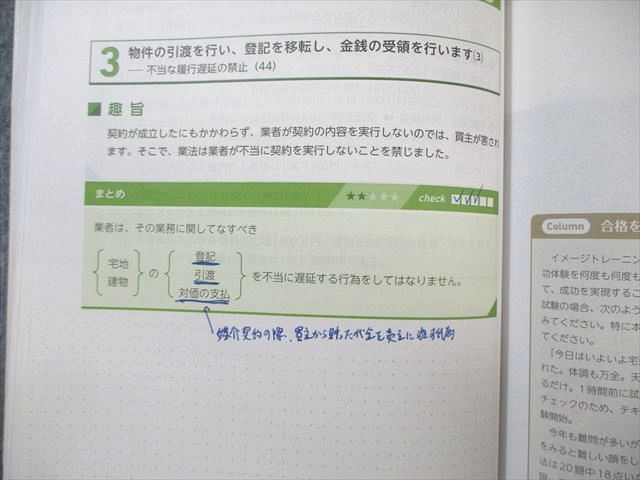 3 物件の引渡を行い、登記を移転し、金銭の受領を行います(3)
── 不当な履行遅延の禁止（44）
■ 趣旨
契約が成立したにもかかわらず、業者が契約の内容を実行しないのでは、買主が害され
ます。そこで、業法は業者が不当に契約を実行しないことを禁じました。
まとめ ★★★★★ check
業者は、その業務に関してなすべき
宅地 建物 の 登記 引渡 対価の支払 を不当に遅延する行為をしてはなりません。
媒介契約の際、買主から
代金を売主に
Column 合格を
イメージトレーニン
功体験を何度も何度も
て、成功を実現するこ
試験の場合、次のよう
みてください。特に本
てください。
「今日はいよいよ宅
れた。体調も万全。天
るだけ。1時間前に試
チェックのため、テキ
験開始。
今年も難問が多いが
をみると難しい顔をし
法は20題中18点い